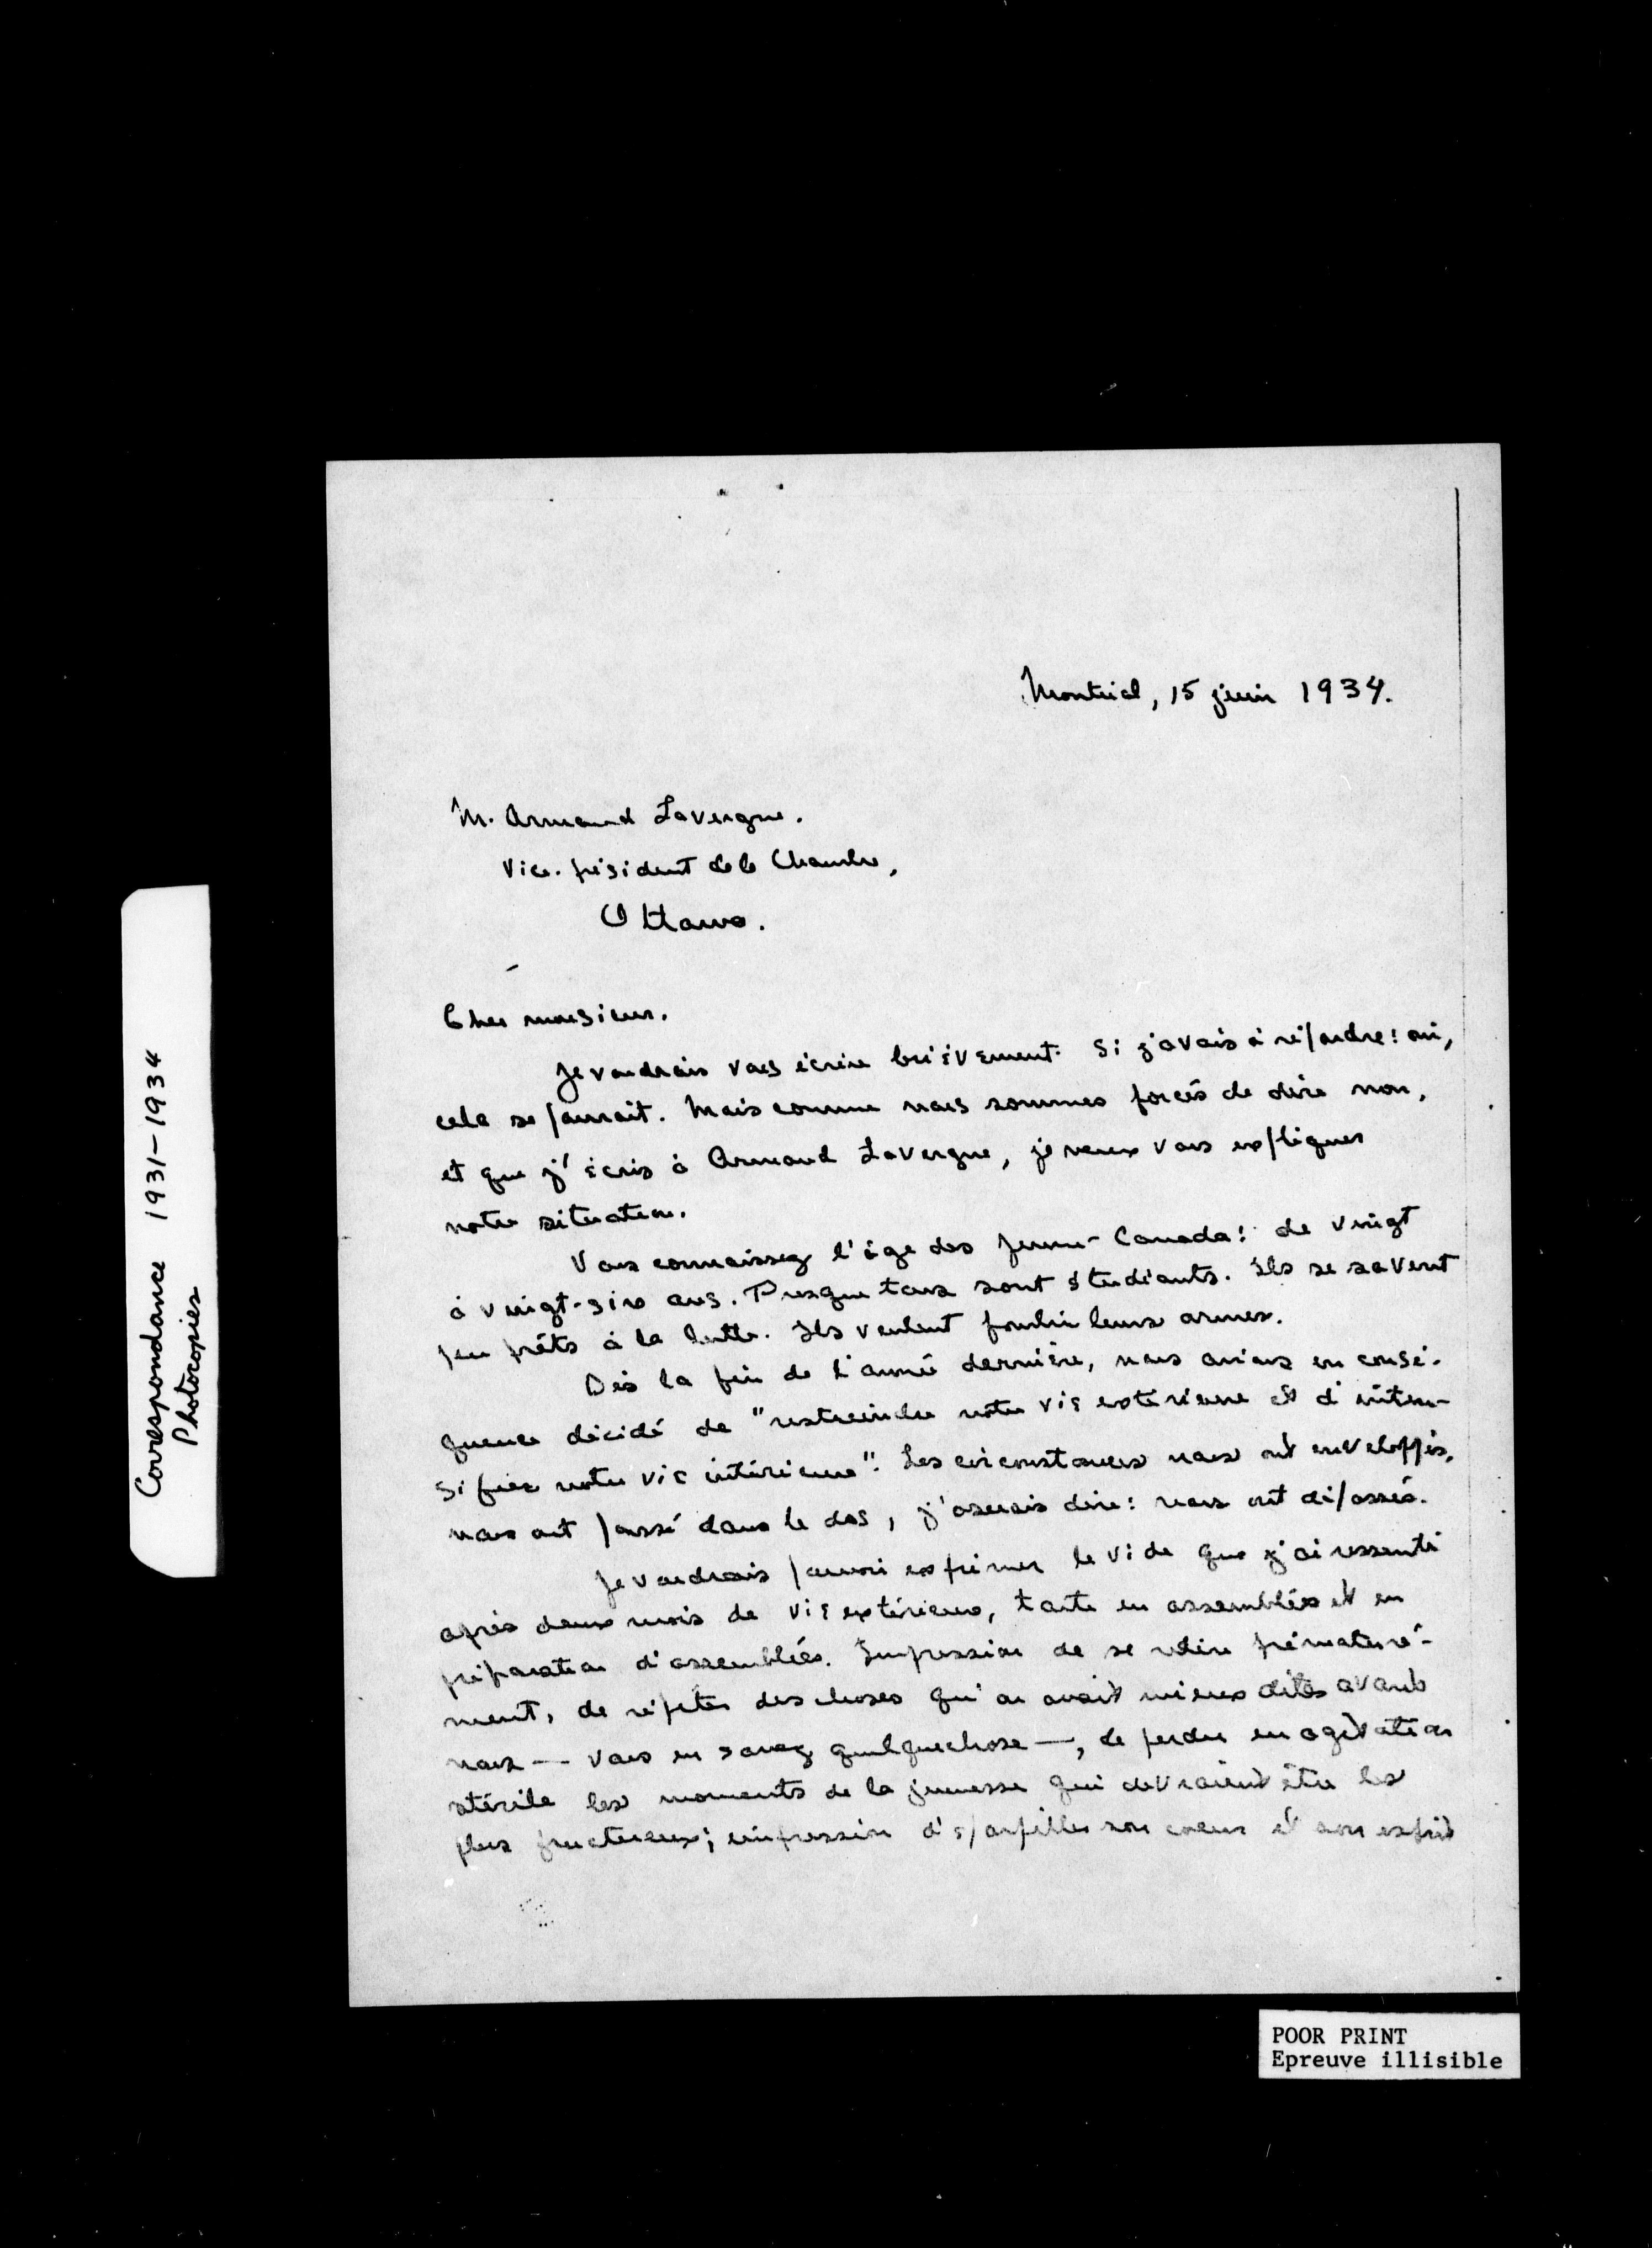 Montréal, 15 juin 1934.
M. Armand Lavergne.
Vice-président de la Chambre,
Ottawa.
Cher monsieur.
Je voudrais vous écrire brièvement. Si j'avais à répondre: oui,
cela se pourrait. Mais comme nous sommes forcés de dire non,
et que j'écris à Armand Lavergne, je veux vous expliquer
notre situation.
Vous connaissez l'âge des Jeune-Canada: de vingt
à vingt-six ans. Presque tous sont étudiants. Ils se savent
peu prêts à la lutte. Ils veulent fourbir leurs armes.
Dès la fin de l'année dernière, nous avions en consé-
quence décidé de "restreindre notre vie extérieure et d'inten-
sifier notre vie intérieure". Les circonstances nous ont enveloppés,
nous ont poussé dans le dos, j'oserais dire: nous ont dépassés.
Je voudrais pouvoir exprimer le vide que j'ai ressenti
après deux mois de vie extérieure, toute en assemblées et en
préparation d'assemblées. Impression de se redire prématuré-
ment, de répéter des choses qu'on avait mieux dites avant
nous — vous en savez quelque chose —, de perdre en agitation
stérile les moments de la jeunesse qui devraient être les
plus fructueux; impression d'éparpiller son coeur et son esprit
Correspondance 1931-1934
Photocopies
POOR PRINT
Epreuve illisible